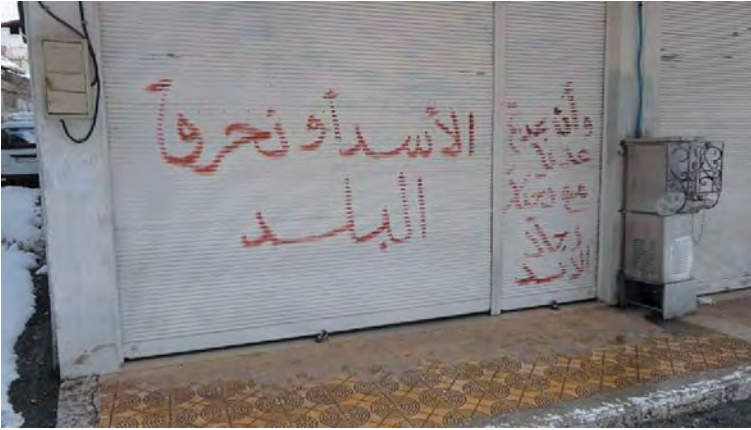 الأسد أو نحرق
البلد
وأن عدتم
عدنا
مع تحيات
رجال
الأسد